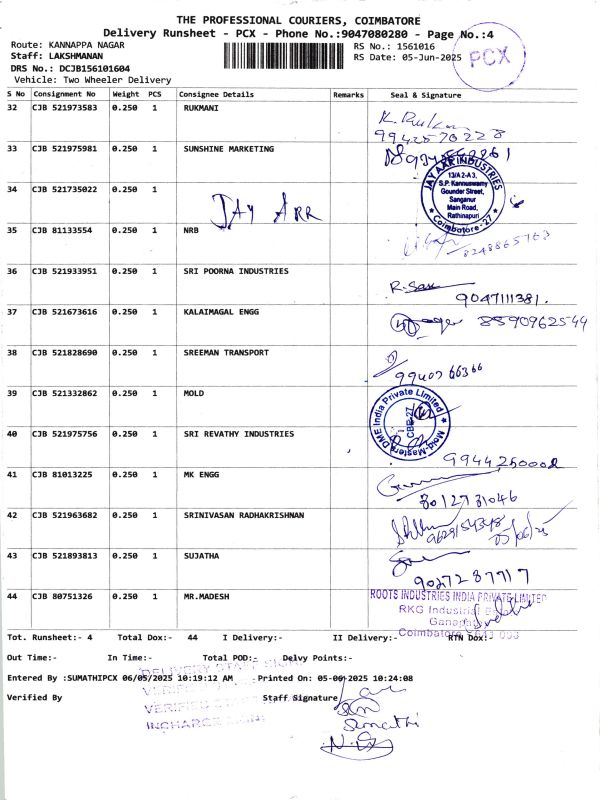 THE PROFESSIONAL COURIERS, COIMBATORE
Delivery Runsheet - PCX - Phone No.:9047080280 - Page No.:4
Route: KANNAPPA NAGAR
RS No.: 1561016
Staff: LAKSHMANAN
RS Date: 05-Jun-2025
PCX
DRS No.: DCJB156101604
Vehicle: Two Wheeler Delivery
S No Consignment No Weight PCS Consignee Details Remarks Seal & Signature
32 CJB 521973583 0.250 1 RUKMANI
9942570228
33 CJB 521975981 0.250 1 SUNSHINE MARKETING
JAY ARR INDUSTRIES
13/A2-A3,
S.P. Kannuswamy
Gounder Street,
Sanganur
Main Road,
Rathinapuri
Coimbatore-27
34 CJB 521735022 0.250 1
JAY ARR
35 CJB 81133554 0.250 1 NRB
8248865763
36 CJB 521933951 0.250 1 SRI POORNA INDUSTRIES
9047111381.
37 CJB 521673616 0.250 1 KALAIMAGAL ENGG
8590962544
38 CJB 521828690 0.250 1 SREEMAN TRANSPORT
9940766366
39 CJB 521332862 0.250 1 MOLD
Mold-Masters DME India Private Limited
CBE-27
40 CJB 521975756 0.250 1 SRI REVATHY INDUSTRIES
9944250002
41 CJB 81013225 0.250 1 MK ENGG
8012731046
42 CJB 521963682 0.250 1 SRINIVASAN RADHAKRISHNAN
9629154348
05/06/25
43 CJB 521893813 0.250 1 SUJATHA
9027287717
44 CJB 80751326 0.250 1 MR.MADESH
ROOTS INDUSTRIES INDIA PRIVATE LIMITED
RKG Industrial
Coimbatore
Tot. Runsheet:- 4 Total Dox:- 44 I Delivery:- II Delivery:- RTN Dox:-
Out Time:- In Time:- Total POD:- Delvy Points:-
DELIVERY STAFF SIGN
Entered By :SUMATHIPCX 06/05/2025 10:19:12 AM Printed On: 05-06-2025 10:24:08
Verified By Staff Signature
INCHARGE SIGN
Sumathi